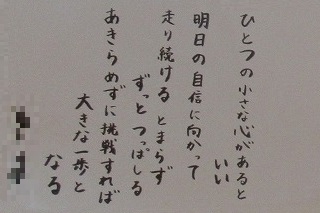 ひとつの小さな心があると
いい
明日の自信に向かって
走り続ける とまらず
ずっとつっぱしる
あきらめずに挑戦すれば
大きな一歩と
なる